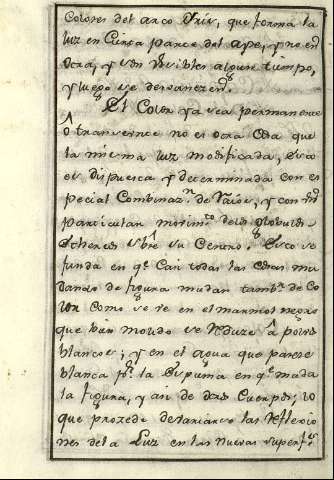 Colores del arco Yris, que forma la
luz en Cierta parte del ayre, y no en
otra, y son visibles algun tiempo,
y luego se desvanezen.
El Color ya sea permanente
ô transeunte no es otra Cosa que
la misma luz modificada, esto
es dispuesta, y determinada con es
pecial Combinaz.n de raios, y con
particular movim.to de los globulos
Ethereos sobre su Centro. Esto se
funda en q.e Casi todas las Cosas mu
dando de figura mudan tamb.n de Co
lor como se ve en el marmol negro
que bien molido se reduze â polvos
blancos; y en el agua que parece
blanca p.r la espuma en q.e muda
la figura, y asi de otros Cuerpos; lo
que prozede de variarse las reflexio
nes de la Luz en las nuevas superf.es